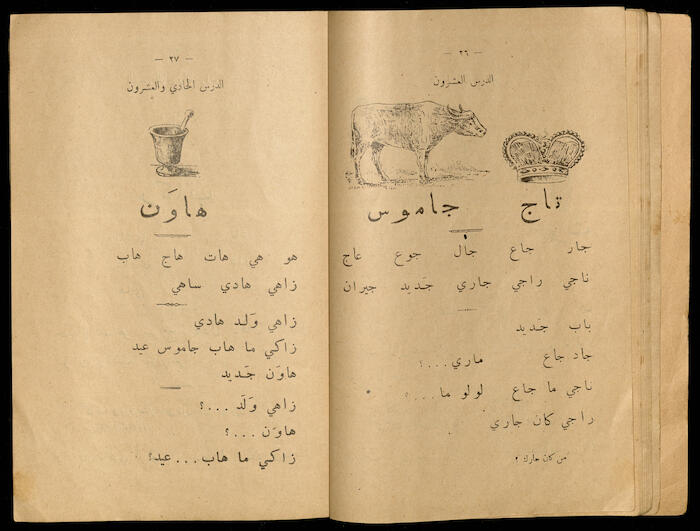 — ٢٦ —
الدرس العشرون
تاج جاموس
جار جاع جال جوع عاج
ناجي راجي جاري جَديد جيران
باب جَديد
جاد جاع ماري...؟
ناجي ما جاع لولو ما...؟
راجي كان جاري
من كان جارك ؟
— ٢٧ —
الدرس الحادي والعشرون
هاوَن
هو هي هات هاج هاب
زاهي هادي ساهي
زاهي وَلَد هادي
زاكي ما هاب جاموس عيد
هاوَن جَديد
زاهي وَلَد ...؟
هاوَن ...؟
زاكي ما هاب...عيد؟